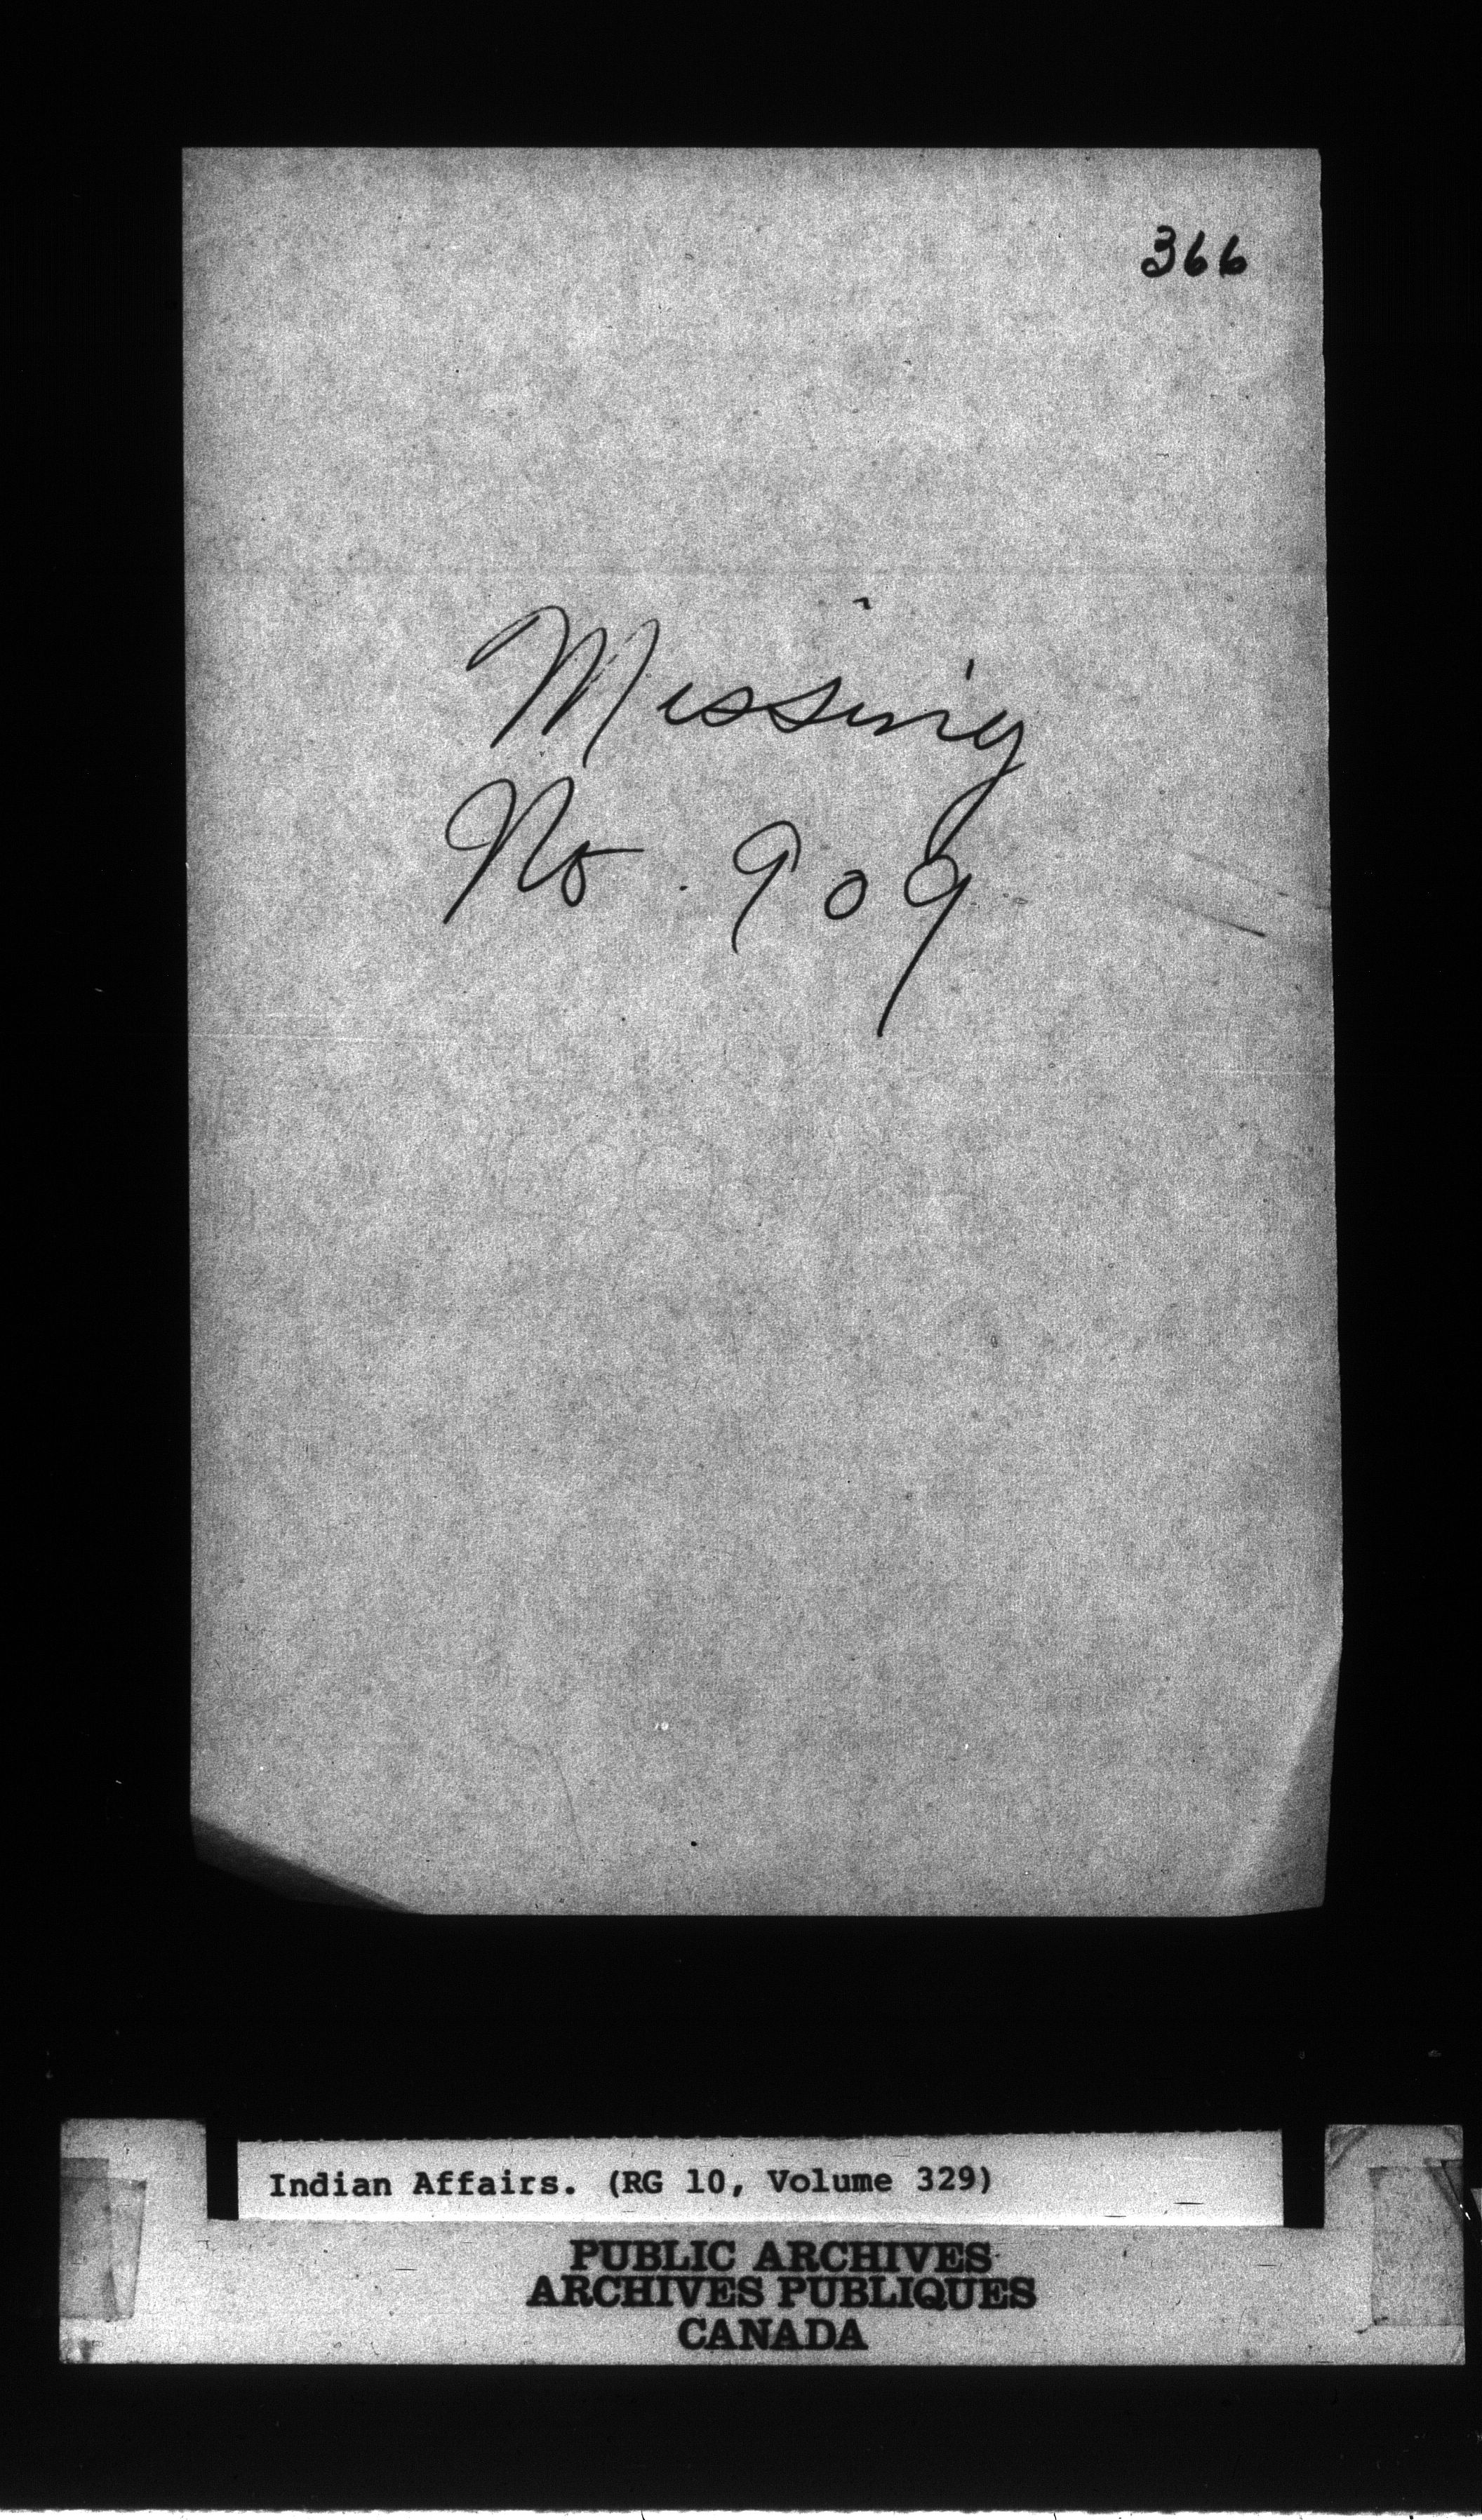 366
Missing
No. 909
Indian Affairs. (RG 10, Volume 329)
PUBLIC ARCHIVES
ARCHIVES PUBLIQUES
CANADA